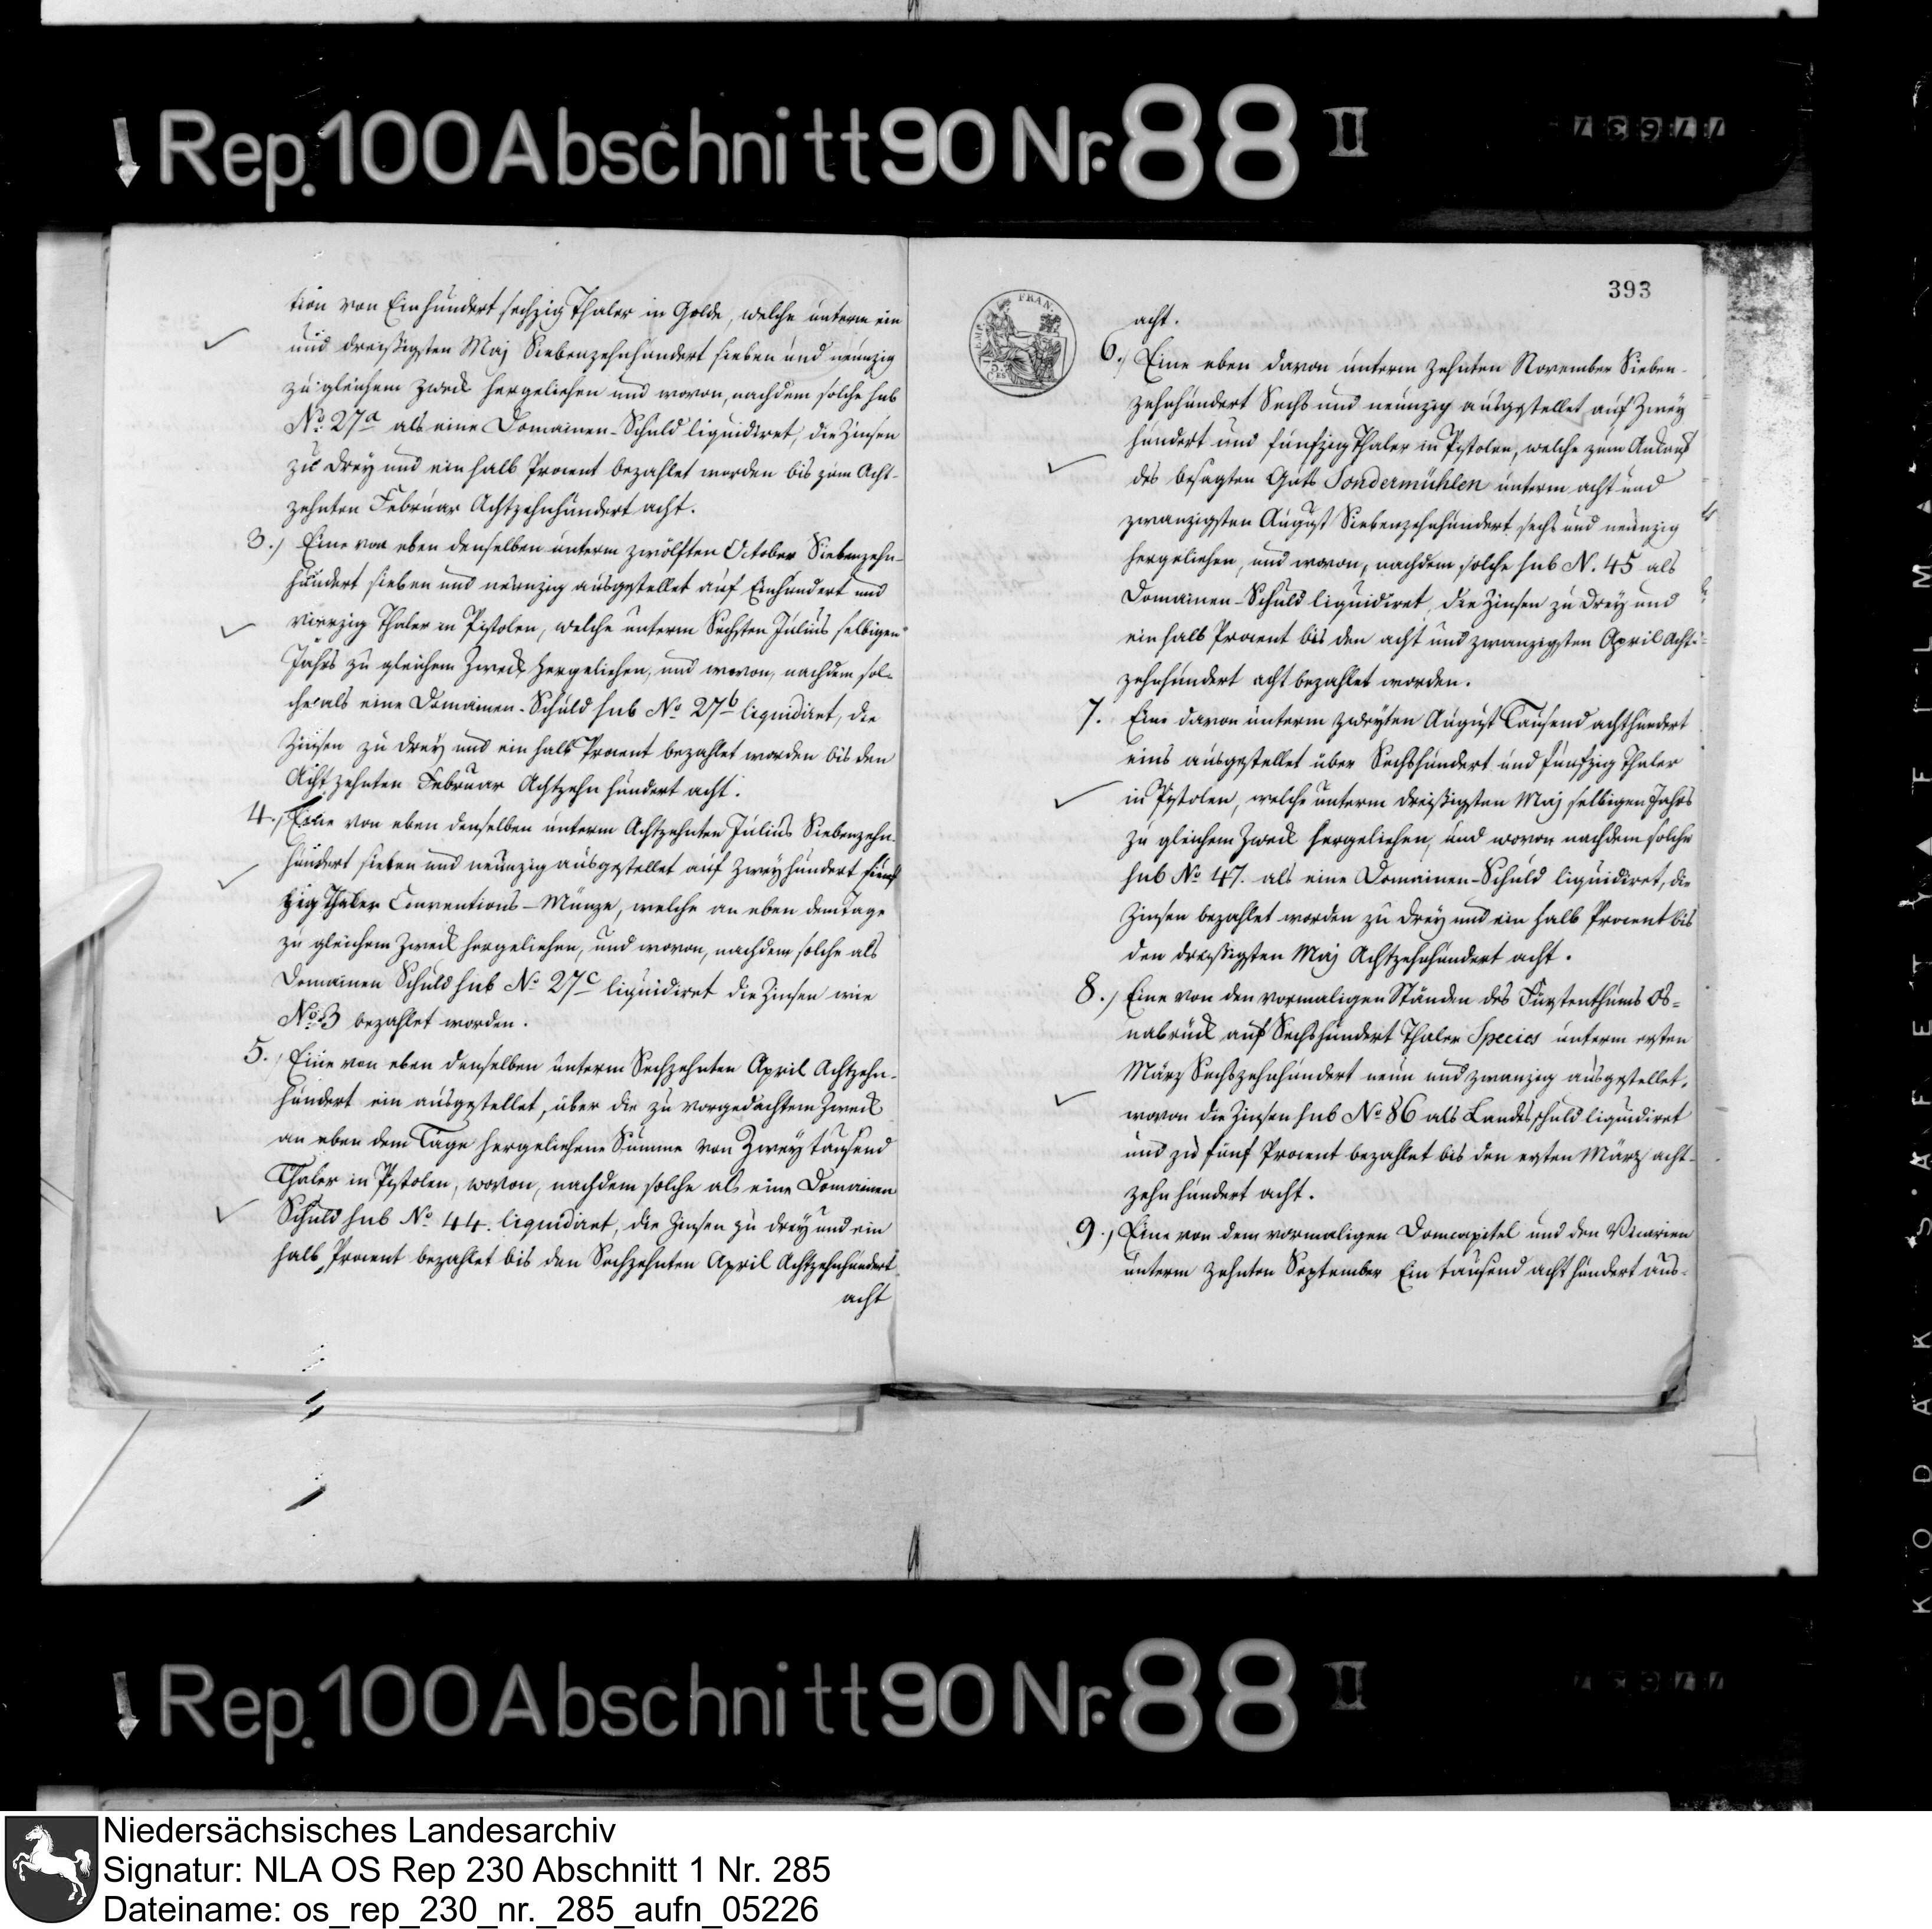 Rep. 100 Abschnitt 90 Nr. 88 II
tion von Einhundert sechzig Thaler in Golde, welche unterm ein
und dreißigsten Maj Siebenzehnhundert sieben und neunzig
zu gleichem Zweck hergeliehen und wovon, nachdem solche sub
No. 27a als eine Domainen-Schuld liquidiret, die Zinsen
zu drey und ein halb Procent bezahlet worden bis zum Acht-
zehnten Februar Achtzehnhundert acht.
3.) Eine von eben denselben unterm zwölften October Siebenzehn-
hundert sieben und neunzig ausgestellet auf Einhundert und
vierzig Thaler in Pistolen, welche unterm Sechsten Julius selbigen
Jahrs zu gleichem Zweck hergeliehen, und wovon, nachdem sol-
che als eine Domainen-Schuld sub No 27b liquidiret, die
Zinsen zu drey und ein halb Procent bezahlet worden bis den
Achtzehnten Februar Achtzehn hundert acht.
4.) Eine von eben denselben unterm Achtzehnten Julius Siebenzehn-
hundert sieben und neunzig ausgestellet auf Zwey hundert fünf
zig Thaler Conventions-Münze, welche an eben dem Tage
zu gleichem Zweck hergeliehen, und wovon, nachdem solche als
Domainen Schuld sub No 27c liquidiret die Zinsen wie
No. 3 bezahlet worden.
5.) Eine von eben denselben unterm Sechzehnten April Achtzehn-
hundert ein ausgestellet, über die zu vorgedachtem Zweck
an eben dem Tage hergeliehene Summe von Zwey tausend
Thaler in Pistolen, wovon, nachdem solche als eine Domainen
Schuld sub No 44. liquidiret, die Zinsen zu drey und ein
halb Procent bezahlet bis den Sechzehnten April Achtzehnhundert
acht
393
FRAN.
acht.
6.) Eine eben davon unterm zehnten November Sieben-
zehnhundert Sechs und neunzig ausgestellet auf Zwey
hundert und fünfzig Thaler in Pistolen, welche zum Ankauf
des besagten Guts Sondermühlen unterm acht und
zwanzigsten August Siebenzehnhundert sechs und neunzig
hergeliehen, und wovon, nachdem solche sub N. 45 als
Domainen-Schuld liquidiret, die Zinsen zu drey und
ein halb Procent bis den acht und zwanzigsten April Acht-
zehnhundert acht bezahlet worden.
7. Eine davon unterm zweyten August Tausend achthundert
eins ausgestellet über Sechshundert und fünfzig Thaler
in Pistolen, welche unterm dreißigsten Maj selbigen Jahrs
zu gleichem Zweck hergeliehen, und wovon nachdem solche
sub No 47. als eine Domainen-Schuld liquidiret, die
Zinsen bezahlet worden zu drey und ein halb Procent bis
den dreißigsten Maj Achtzehnhundert acht.
8.) Eine von den vormaligen Ständen des Fürstenthums Os-
nabrück auf Sechshundert Thaler Species unterm ersten
März Sechszehnhundert neun und zwanzig ausgestellet,
wovon die Zinsen sub No 86 als Landesschuld liquidiret
und zu fünf Procent bezahlet bis den ersten März acht-
zehn hundert acht.
9.) Eine von dem vormaligen Domcapitel und den Vicarien
unterm zehnten September Ein tausend acht hundert aus-
Rep. 100 Abschnitt 90 Nr. 88 II
KODAK SAFETY FILM
Niedersächsisches Landesarchiv
Signatur: NLA OS Rep 230 Abschnitt 1 Nr. 285
Dateiname: os_rep_230_nr._285_aufn_05226